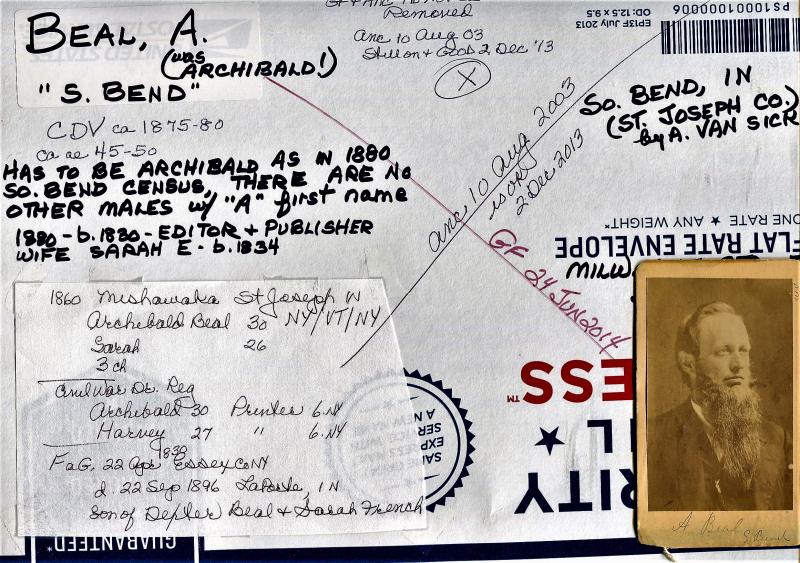 BEAL, A.
(was ARCHIBALD!)
"S. BEND"
CDV ca 1875-80
ca ae 45-50
HAS TO BE ARCHIBALD AS IN 1880
SO. BEND CENSUS, THERE ARE NO
OTHER MALES w/ "A" first name
1880 - b.1830 - EDITOR + PUBLISHER
WIFE SARAH E - b.1834
Removed
anc 10 Aug 03
2 Dec '13
X
EP13F July 2013
OD: 12.5 x 9.5
PS10001000006
SO. BEND, IN
(ST. JOSEPH CO.)
by A. VAN SICK
anc 10 Aug 2003
is on
2 Dec 2013
GF 24 JUN 2014
ONE RATE ★ ANY WEIGHT*
FLAT RATE ENVELOPE
MILW
ESS™
★ L
RITY
1860 Mishawaka St Joseph IN
Archibald Beal 30 NY/VT/NY
Sarah 26
3 ch
Civil War Dr. Reg
Archibald 30 Printer b. NY
Harvey 27 " b. NY
FaG. 22 Apr 1830 Essex Co NY
d. 22 Sep 1896 LaPorte, IN
Son of Depter Beal & Sarah French
GUARANTEED*
A Beal
S. Bend